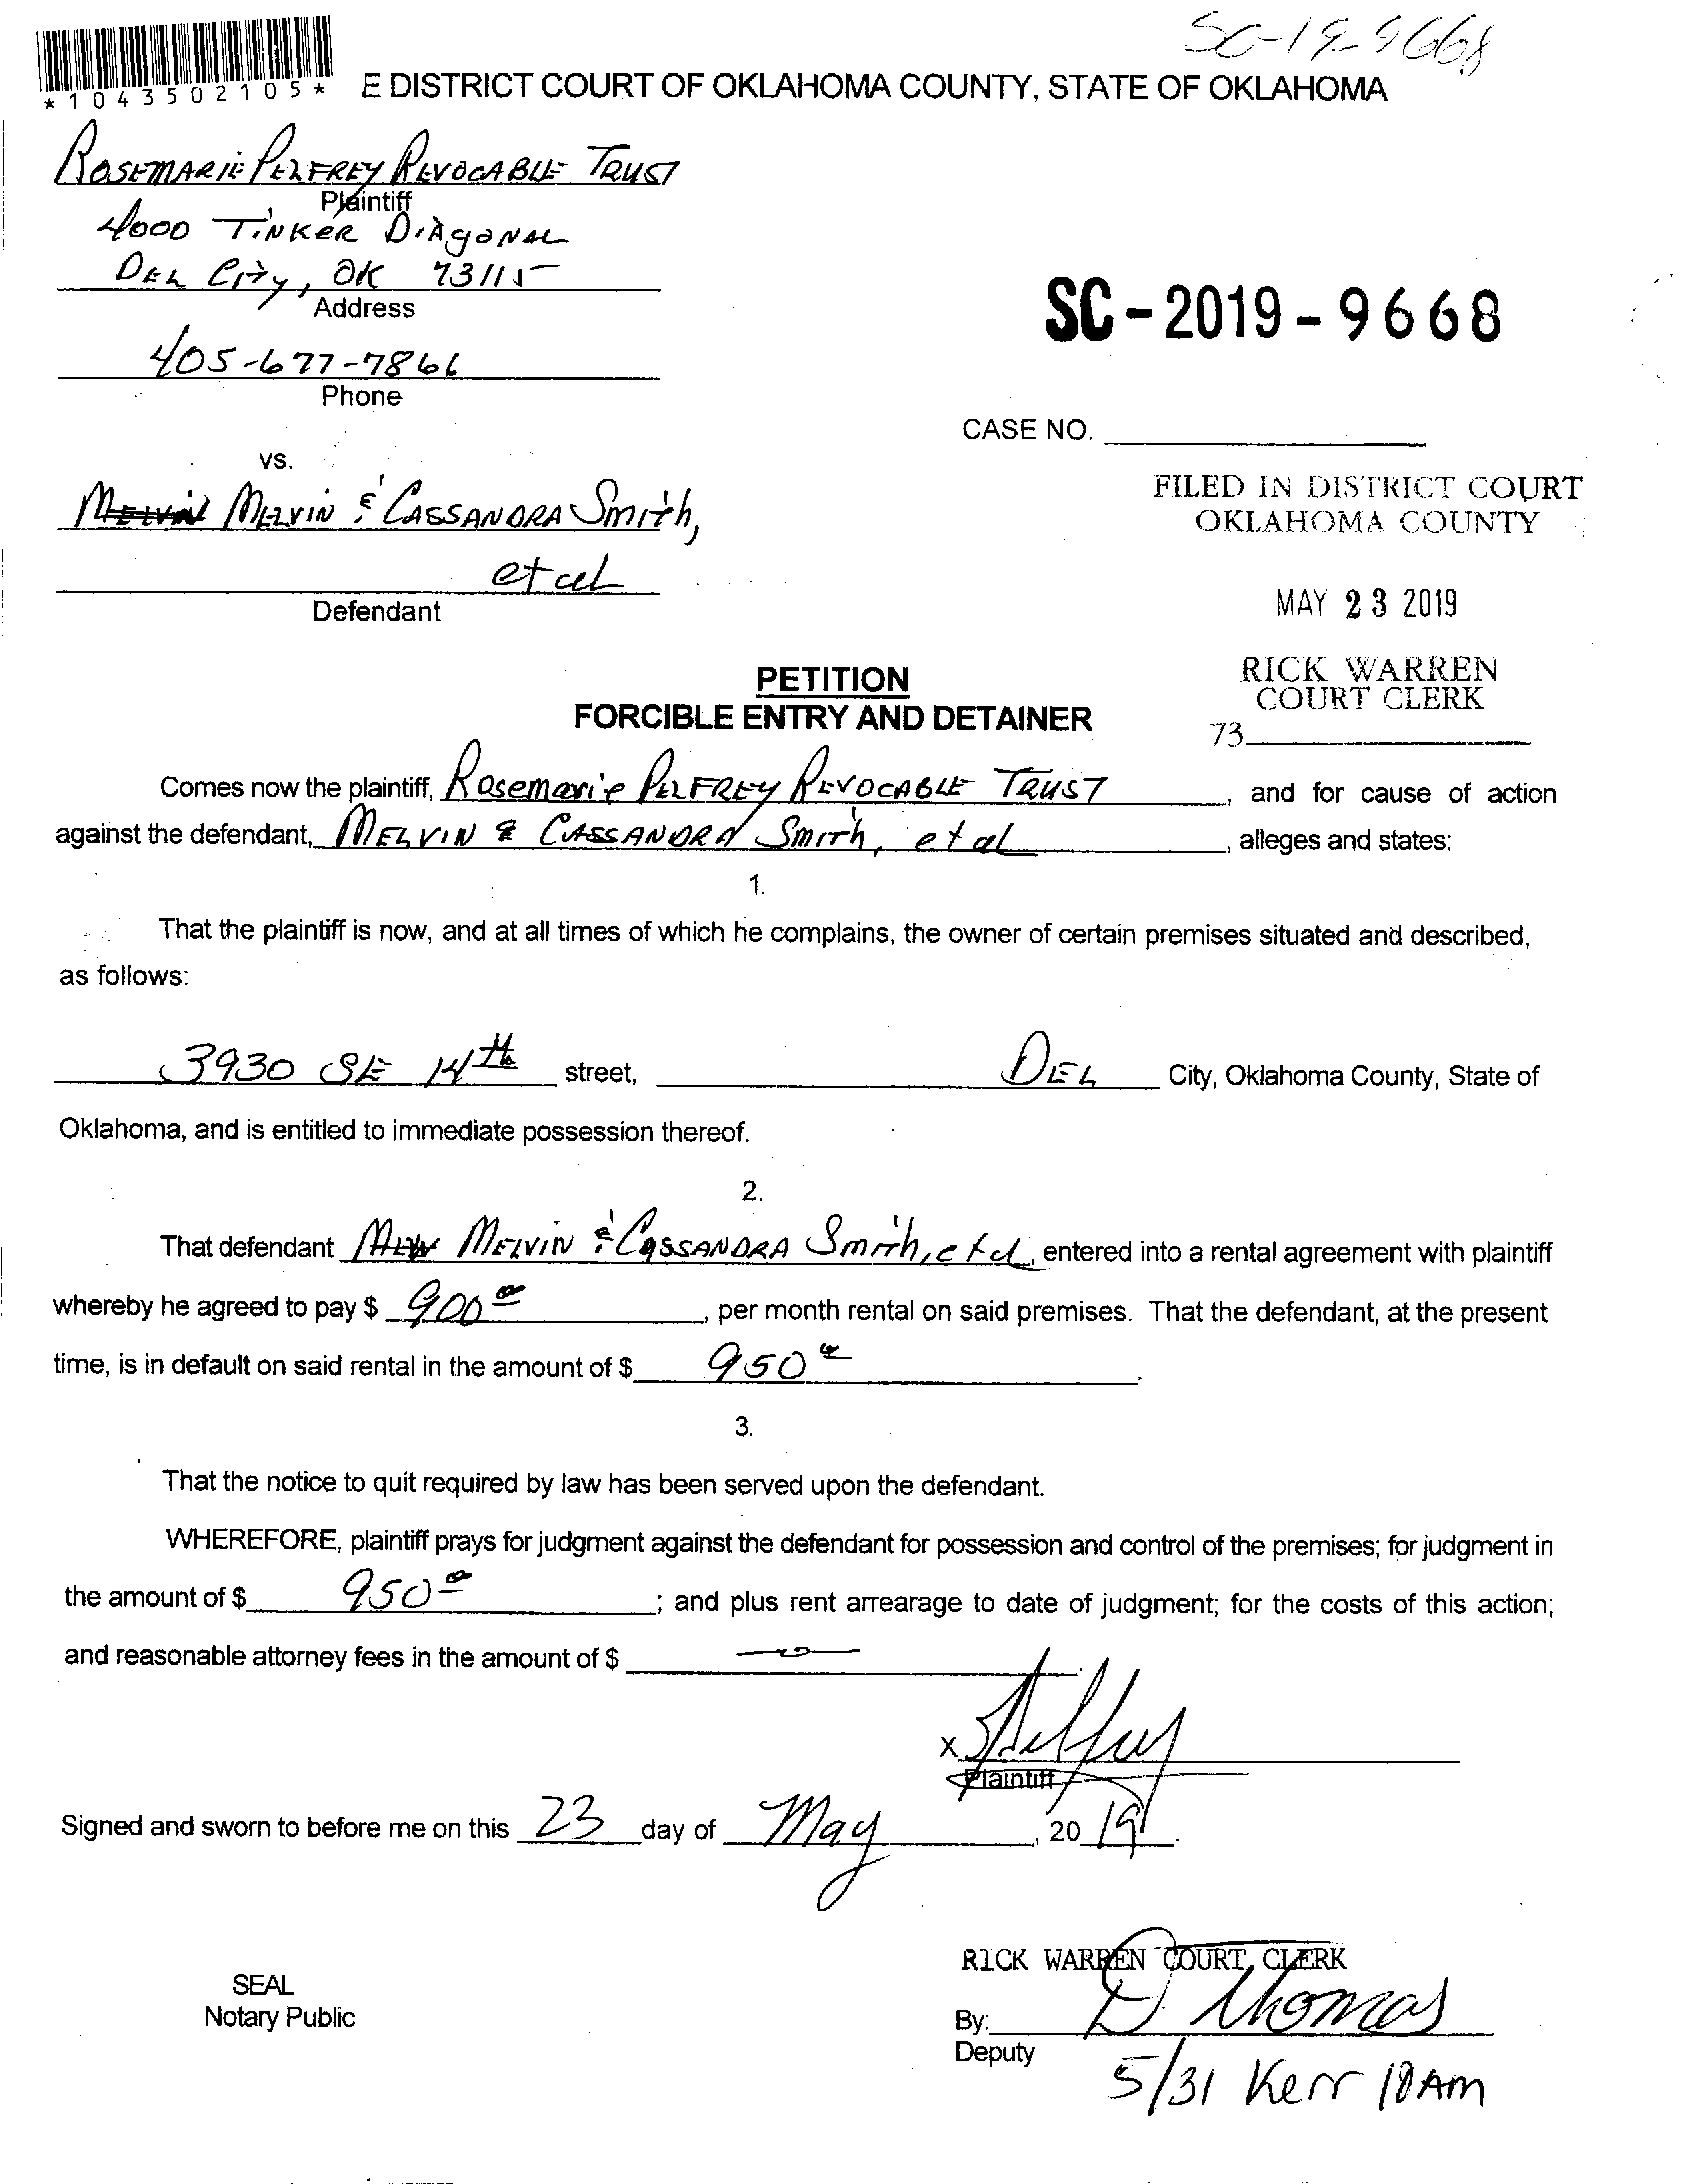 SC-19-9668
*1043502105*
E DISTRICT COURT OF OKLAHOMA COUNTY, STATE OF OKLAHOMA
ROSEMARIE PELFREY REVOCABLE TRUST
Plaintiff
4000 TINKER DIAGONAL
DEL CITY, OK 73115
Address
SC-2019-9668
405-677-7866
Phone
CASE NO.
vs.
MELVIN MELVIN & CASSANDRA SMITH,
et al
Defendant
FILED IN DISTRICT COURT
OKLAHOMA COUNTY
MAY 23 2019
RICK WARREN
COURT CLERK
73
PETITION
FORCIBLE ENTRY AND DETAINER
Comes now the plaintiff, Rosemarie PELFREY REVOCABLE TRUST, and for cause of action
against the defendant, MELVIN & CASSANDRA Smith, et al, alleges and states:
1.
That the plaintiff is now, and at all times of which he complains, the owner of certain premises situated and described,
as follows:
3930 SE 14th street, DEL City, Oklahoma County, State of
Oklahoma, and is entitled to immediate possession thereof.
2.
That defendant MELVIN & CASSANDRA Smith, et al, entered into a rental agreement with plaintiff
whereby he agreed to pay $ 900, per month rental on said premises. That the defendant, at the present
time, is in default on said rental in the amount of $ 950.
3.
That the notice to quit required by law has been served upon the defendant.
WHEREFORE, plaintiff prays for judgment against the defendant for possession and control of the premises; for judgment in
the amount of $ 950; and plus rent arrearage to date of judgment; for the costs of this action;
and reasonable attorney fees in the amount of $ -0-
X Pelfrey
Plaintiff
Signed and sworn to before me on this 23 day of May, 2019.
RICK WARREN COURT CLERK
SEAL
Notary Public
By: D Thomas
Deputy
5/31 Kerr 10AM